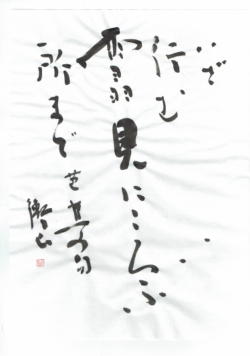 いざ
行む
雪見にころふ
所まで
芭蕉句